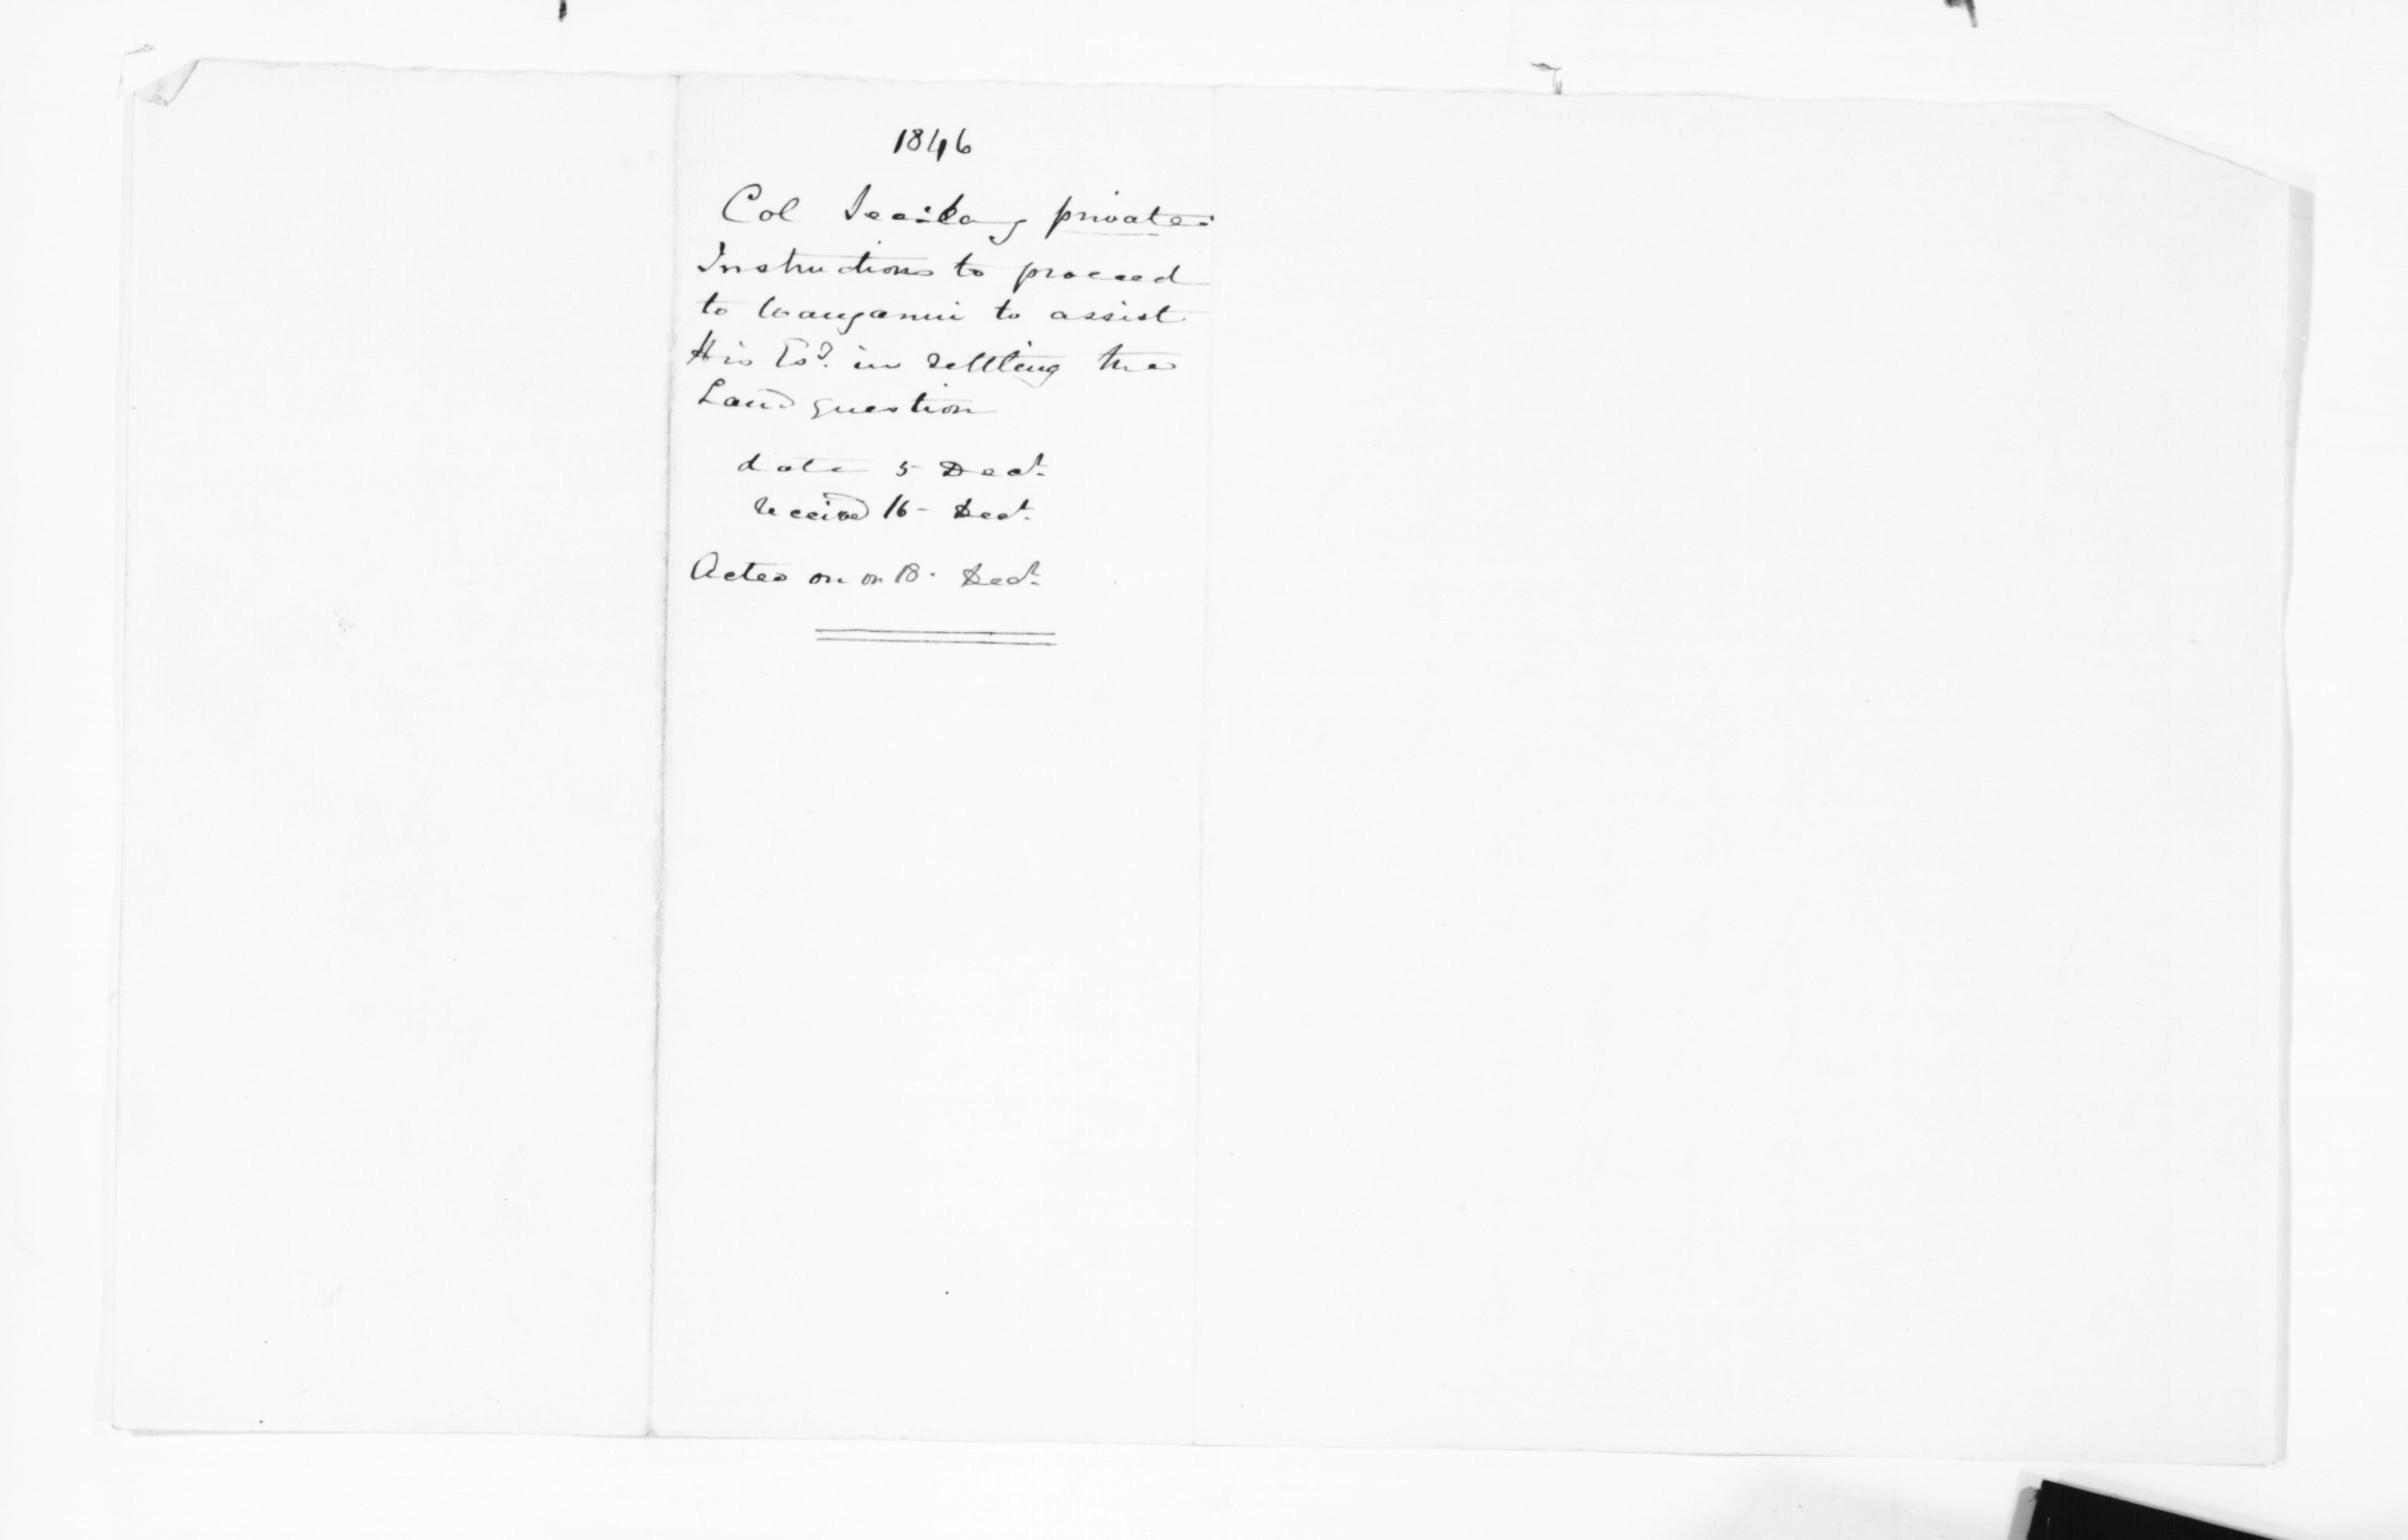 1846
Col Secretary private
Instructions to proceed
to Wanganui to assist
His Ex? in settling the
Land question
date 5 Decr.
received 16 - Decr.
Acted on on 18. Decr.